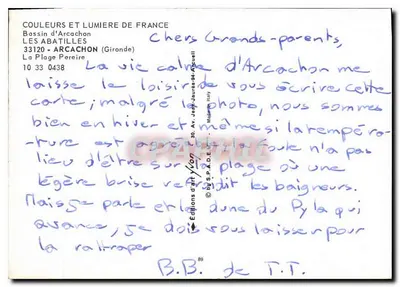 COULEURS ET LUMIERE DE FRANCE
Bassin d'Arcachon
LES ABATILLES
33120 - ARCACHON (Gironde)
La Plage Pereire
10 33 0438
Chers Grands-parents,
La vie calme d'Arcachon me
laisse le loisir de vous écrire cette
carte; malgré la photo, nous sommes
bien en hiver et même si la tempéra-
ture est la foule n'a pas
lieu d'être sur la plage où une
légère brise refroidit les baigneurs.
Mais je parle et la dune du Pyla qui
avance, je dois vous laisser pour
la rattraper
B.B. de T.T.
Editions d'art yvon